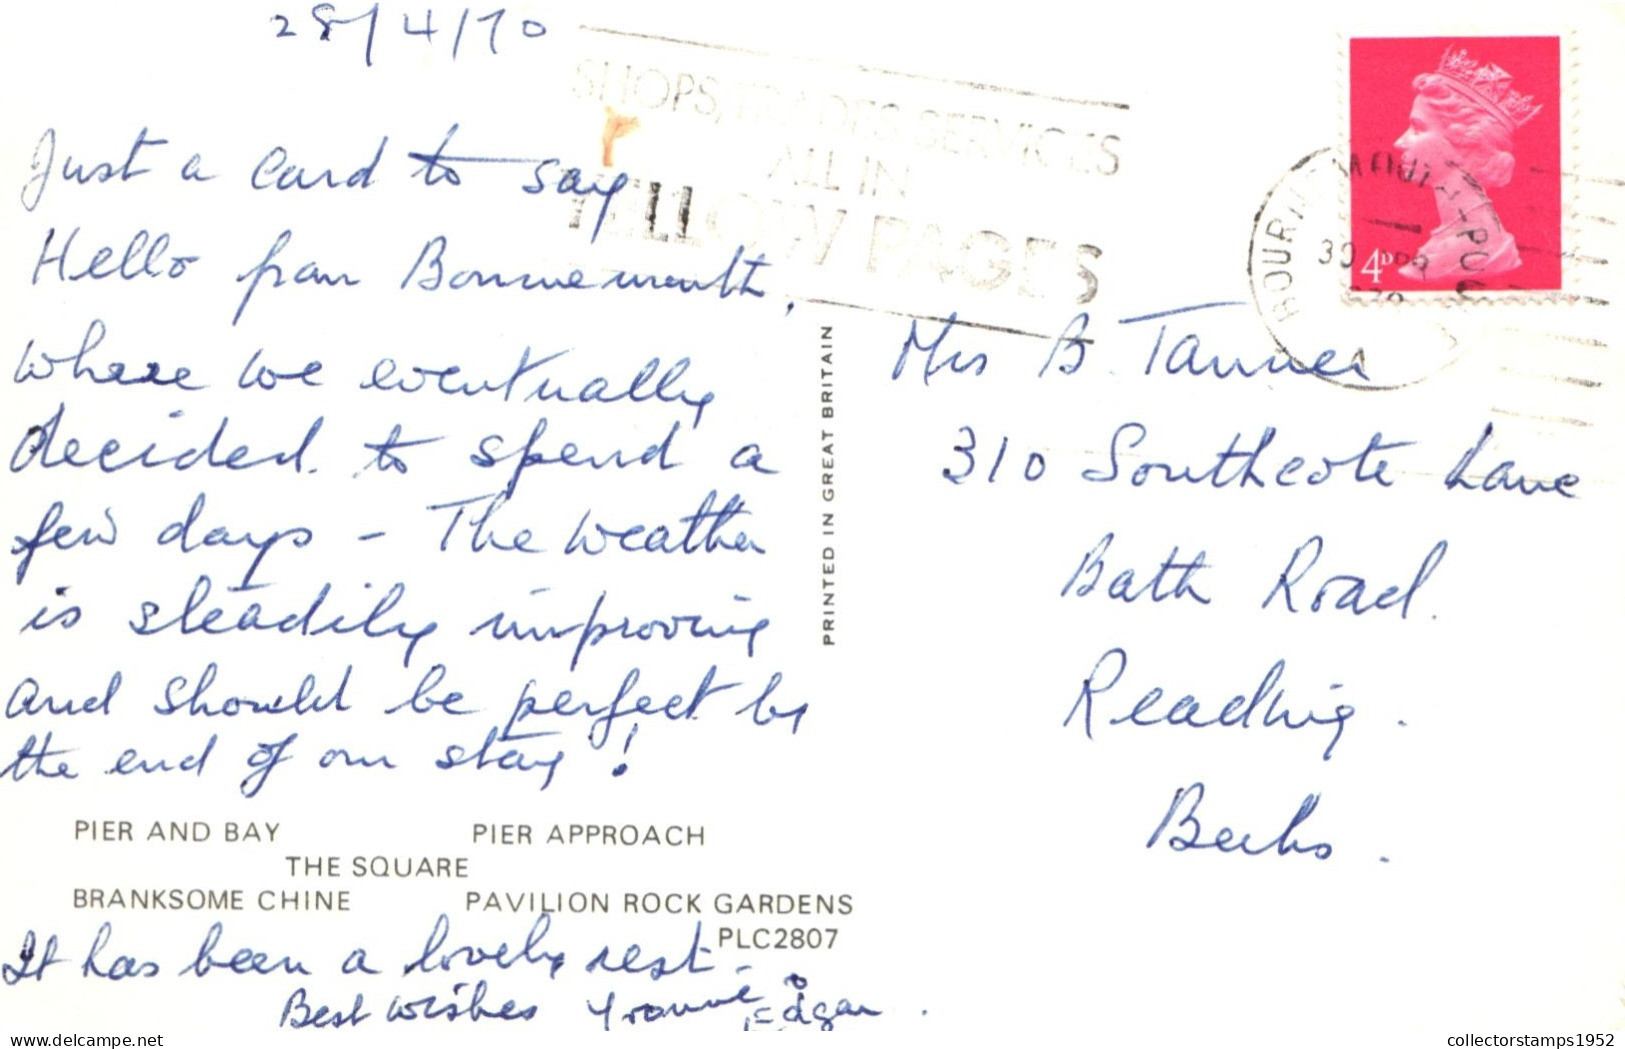 28/4/70
SHOPS, TRADES, SERVICES
ALL IN
YELLOW PAGES
BOURNEMOUTH-POOLE
30 APR
1970
A
4D
Just a card to say
Hello from Bournemouth,
where we eventually
decided to spend a
few days - The weather
is steadily improving
and should be perfect by
the end of our stay!
PIER AND BAY PIER APPROACH
THE SQUARE
BRANKSOME CHINE PAVILION ROCK GARDENS
PLC2807
It has been a lovely rest.
Best wishes Yvonne & Edgar.
PRINTED IN GREAT BRITAIN
Mrs B. Tanner
310 Southcote Lane
Bath Road.
Reading.
Berks.
collectorstamps1952